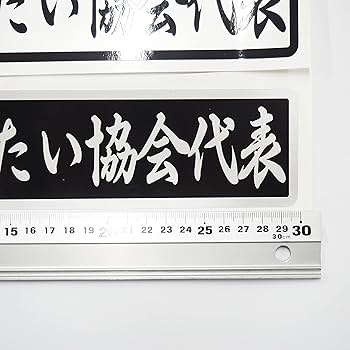 たい協会代表
たい協会代表
15 16 17 18 19 20 21 22 23 24 25 26 27 28 29 30
30cm